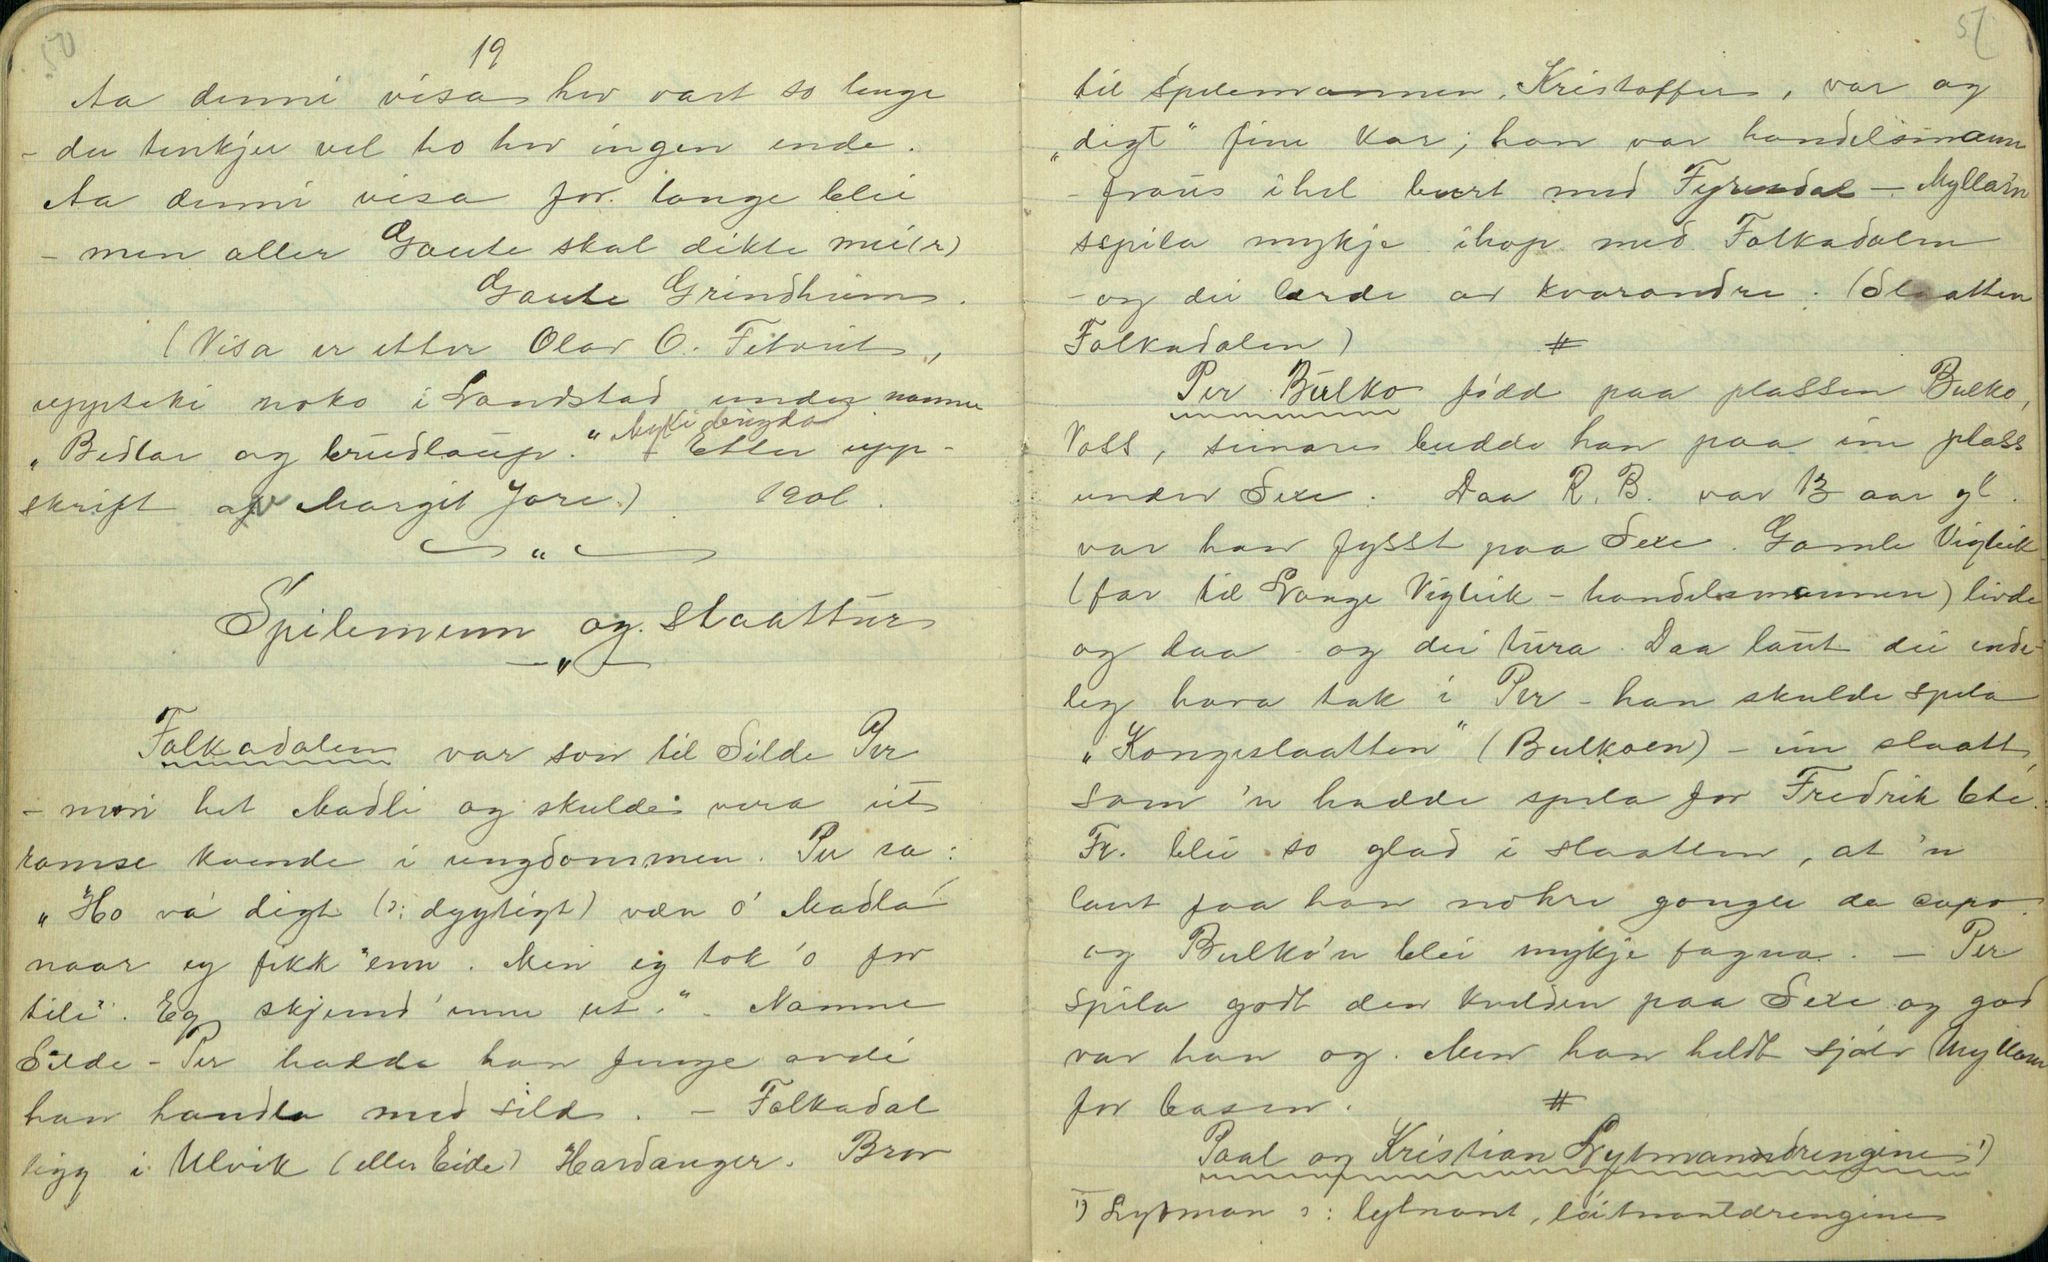 50
19
Aa denni visa hev vart so lenge
- du tenkjer vel ho hev ingen ende.
Aa denni visa for lange blei
- men aller Gaute skal dikte mei(r)
Gaute Grindheim.
(Visa er etter Olav O. Fitveit,
uppteki noko i Landstad under namne
„Bedlar og brudlaup." Etter upp-
skrift av Margit Jore.) 1901.
„
Spilemenn og slaattur
„
Falkadalen var son til Silde Per
- mori het Madli og skulde vera ut
ramse kvende i ungdommen. Per sa:
„Ho va' digt (ɔ: dygtigt) væn o' Madla'
naar eg fikk 'enn. Men eg tok 'o for
tile". Eg skjemd 'enne ut.". Namne
Silde-Per hadde han fenge avdi
han handla med sild. – Falkadal
ligg i Ulvik (eller Eide) Hardanger. Bror
51
til spelemannen, Kristoffer, var og
„digt" fin kar; han var handelsmann
- fraus ihel burt med Fyresdal – Myllarn
spila mykje ihop med Falkadalen
- og dei lærde av kvarandre. (Slaatten
Falkadalen) #
Per Bulko fødd paa plassen Bulko,
Voss, seinare budde han paa ein plass
under Sexe. Daa R. B. var 13 aar gl.
var han fysst paa Sexe. Gamle Vigleik
(far til Lange Vigleik – handelsmannen) livde
og daa - og dei tura. Daa laut dei ende-
leg hava tak i Per – han skulde spela
„Kongeslaatten" (Bulkoen) – ein slaatt,
som 'n hadde spela for Fredrik 6te.
Fr. blei so glad i slaatten, at 'n
laut faa han nokre gonger da capo
og Bulko'n blei mykje fagna. – Per
spila godt den kvelden paa Sexe og god
var han og. Men han heldt sjølv Myllarn
for basen. #
Paal og Kristian Lytmanndrengine ¹)
¹) Lytman ɔ: lytnant, løitnantdrengine